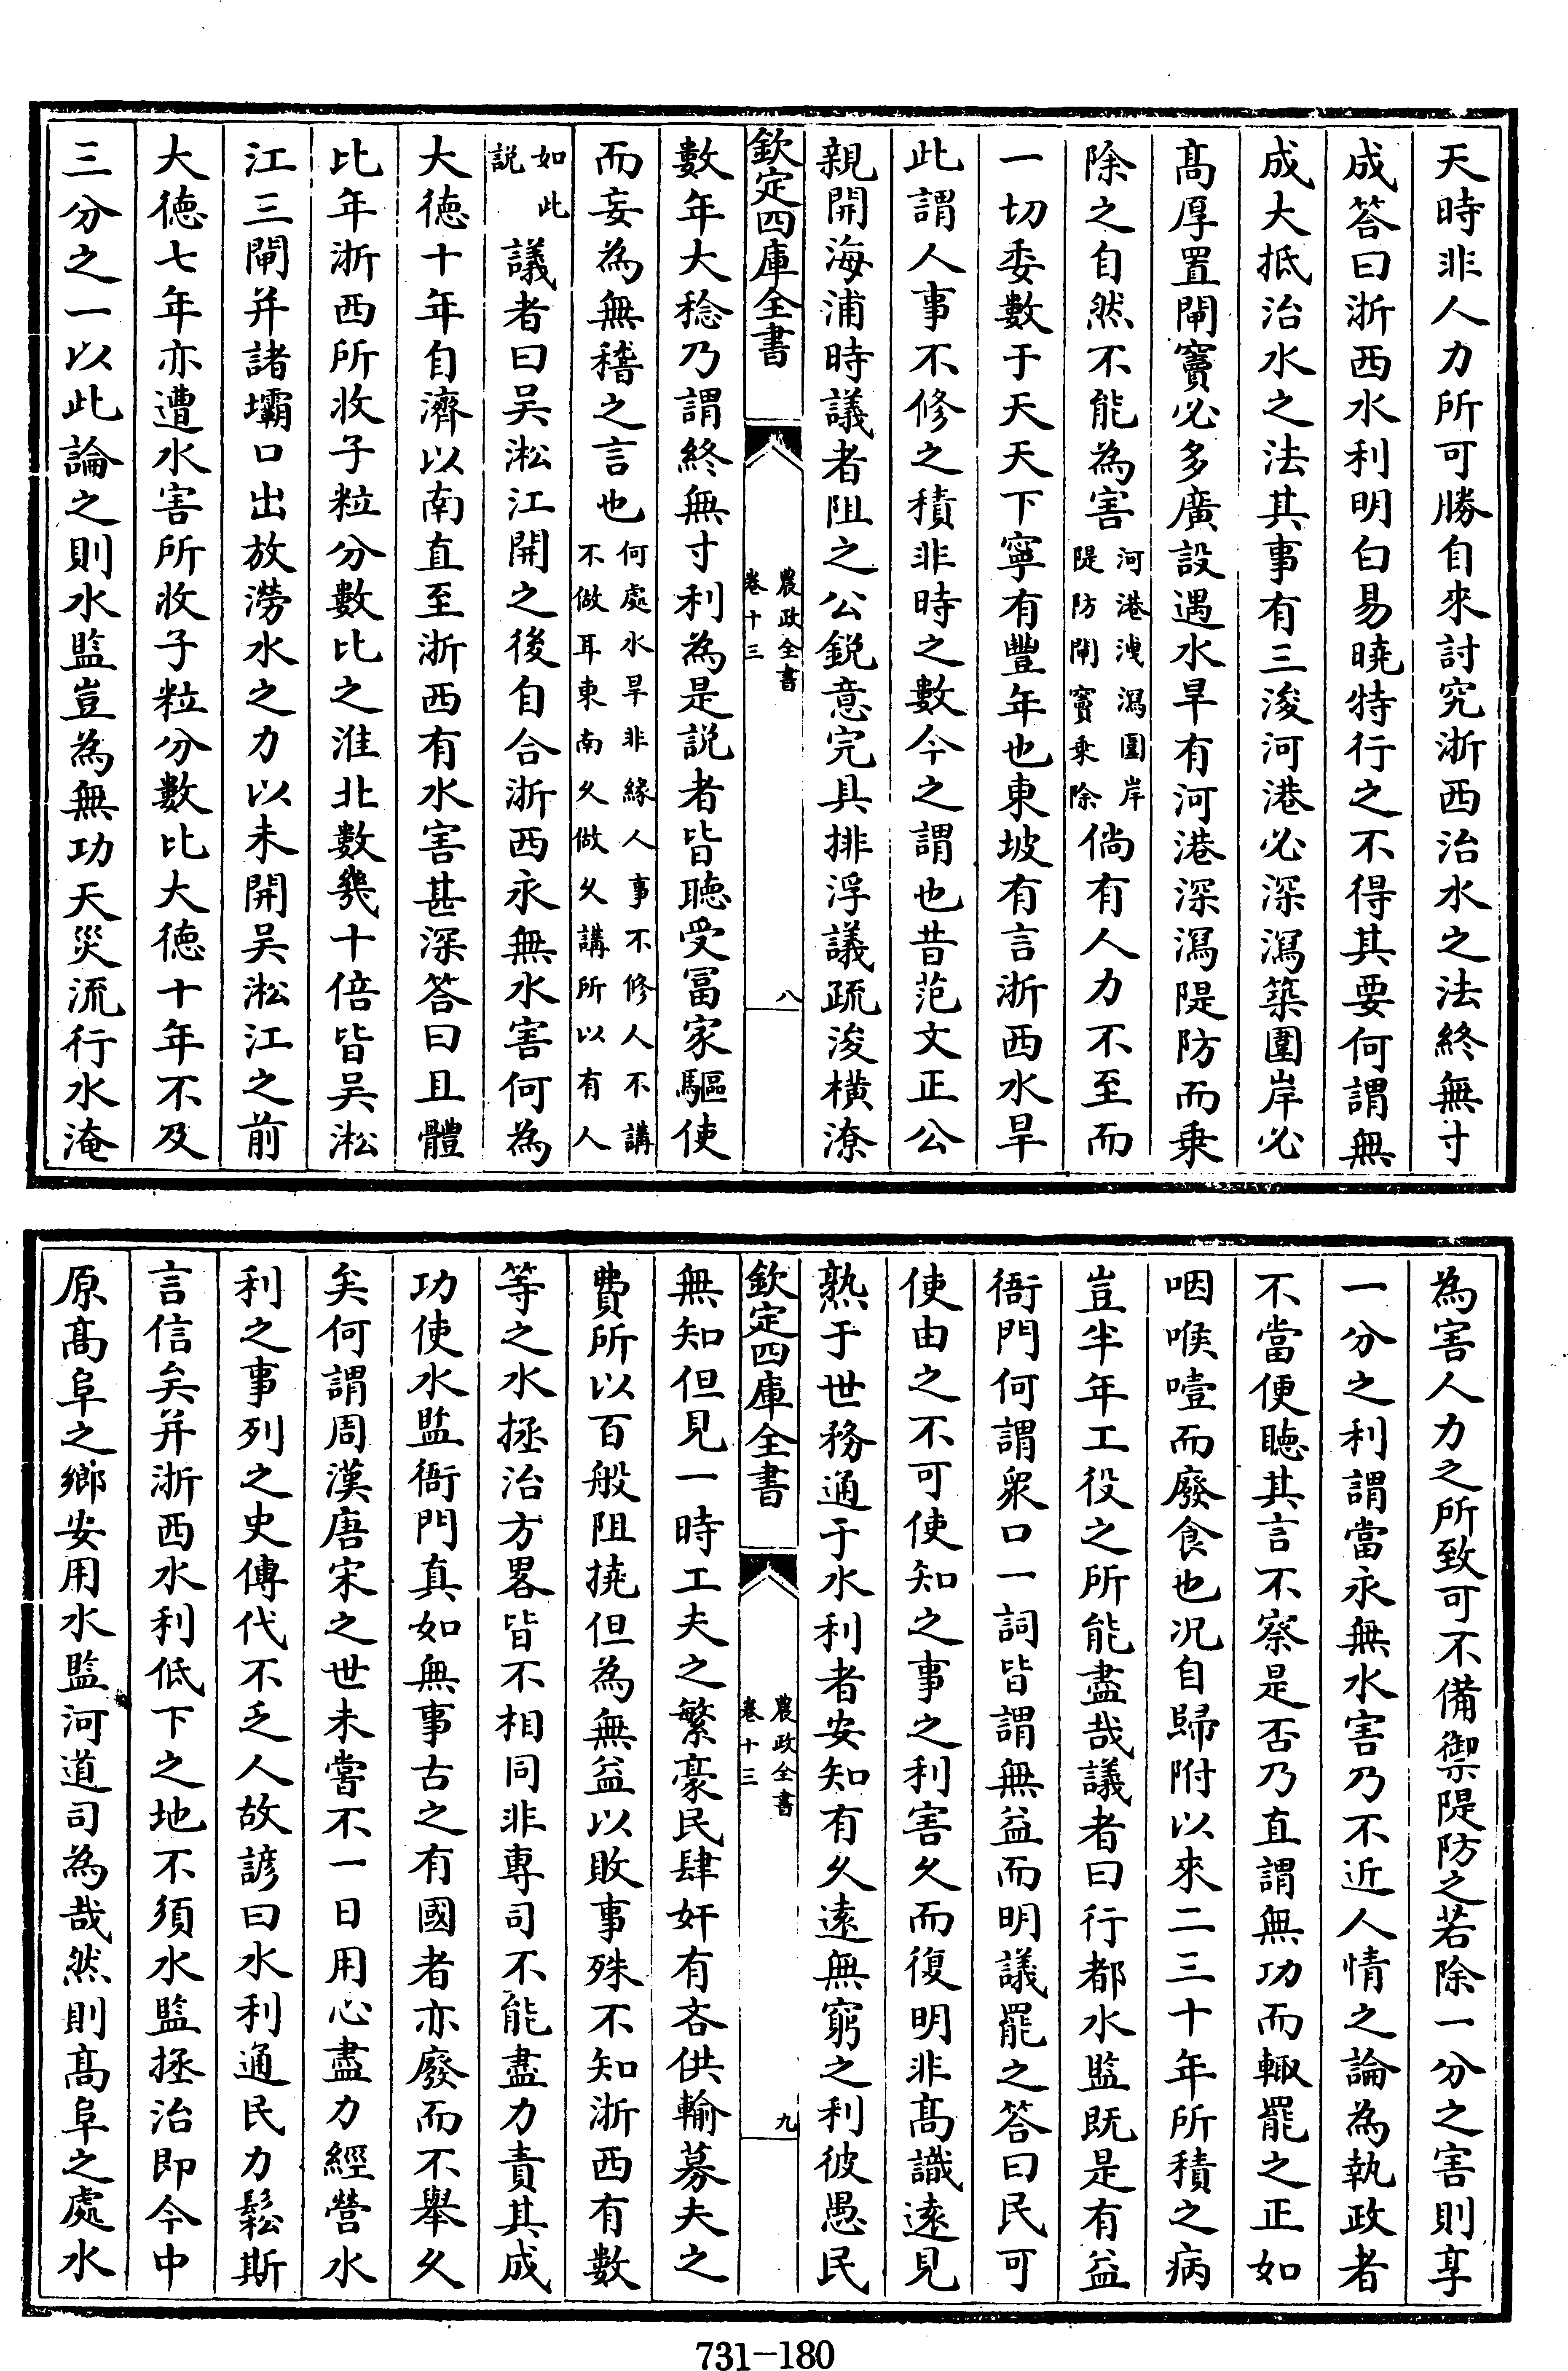 天時非人力所可勝自來討究浙西治水之法終無寸
成答曰浙西水利明白易曉特行之不得其要何謂無
成大抵治水之法其事有三浚河港必深濶築圍岸必
髙厚置閘竇必多廣設遇水旱有河港深濶隄防而乗
除之自然不能為害河港洩瀉圍岸隄防閘竇乗除倘有人力不至而
一切委數于天天下寧有豐年也東坡有言浙西水旱
此謂人事不修之積非時之數今之謂也昔范文正公
親開海浦時議者阻之公鋭意完具排浮議疏浚横潦
欽定四庫全書
農政全書
卷十三
八
數年大稔乃謂終無寸利為是説者皆聽受冨家驅使
而妄為無稽之言也何處水旱非緣人事不修人不講不做耳東南久做久講所以有人
如此説議者曰吴淞江開之後自合浙西永無水害何為
大徳十年自濟以南直至浙西有水害甚深答曰且體
比年浙西所收子粒分數比之淮北數幾十倍皆吴淞
江三閘并諸壩口出放澇水之力以未開吴淞江之前
大徳七年亦遭水害所收子粒分數比大徳十年不及
三分之一以此論之則水監豈為無功天災流行水淹
為害人力之所致可不備禦隄防之若除一分之害則享
一分之利謂當永無水害乃不近人情之論為執政者
不當便聽其言不察是否乃直謂無功而輒罷之正如
咽喉噎而廢食也况自歸附以來二三十年所積之病
豈半年工役之所能盡哉議者曰行都水監既是有益
衙門何謂衆口一詞皆謂無益而明議罷之答曰民可
使由之不可使知之事之利害久而復明非髙識逺見
熟于世務通于水利者安知有久逺無窮之利彼愚民
欽定四庫全書
農政全書
卷十三
九
無知但見一時工夫之繁豪民肆奸有吝供輸募夫之
費所以百般阻撓但為無益以敗事殊不知浙西有數
等之水拯治方畧皆不相同非專司不能盡力責其成
功使水監衙門真如無事古之有國者亦廢而不舉久
矣何謂周漢唐宋之世未嘗不一日用心盡力經營水
利之事列之史傳代不乏人故諺曰水利通民力鬆斯
言信矣并浙西水利低下之地不須水監拯治即今中
原髙阜之鄉安用水監河道司為哉然則髙阜之處水
731-180